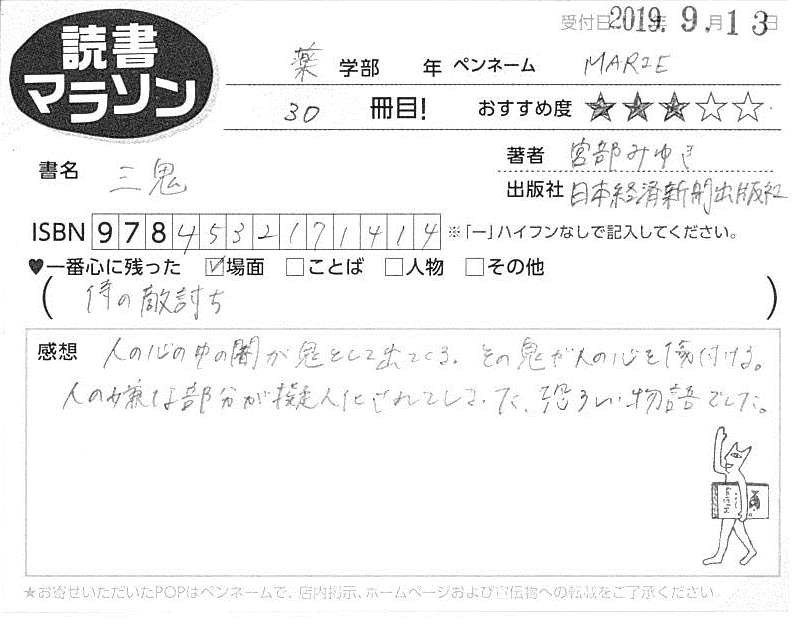 受付日 2019.年 9.月 13日
読書
マラソン
薬 学部 年 ペンネーム MARIE
30 冊目! おすすめ度 ★★★☆☆
書名 三鬼
著者 宮部みゆき
出版社 日本経済新聞出版社
ISBN 9784532171414 ※「ー」ハイフンなしで記入してください。
♥一番心に残った ☑場面 □ことば □人物 □その他
(侍の敵討ち)
感想 人の心の中の闇が鬼として出てくる。その鬼が人の心を傷付ける。
人の嫌な部分が擬人化されてしまった、恐ろしい物語でした。
★お寄せいただいたPOPはペンネームで、店内掲示、ホームページおよび宣伝物への転載をご了承ください